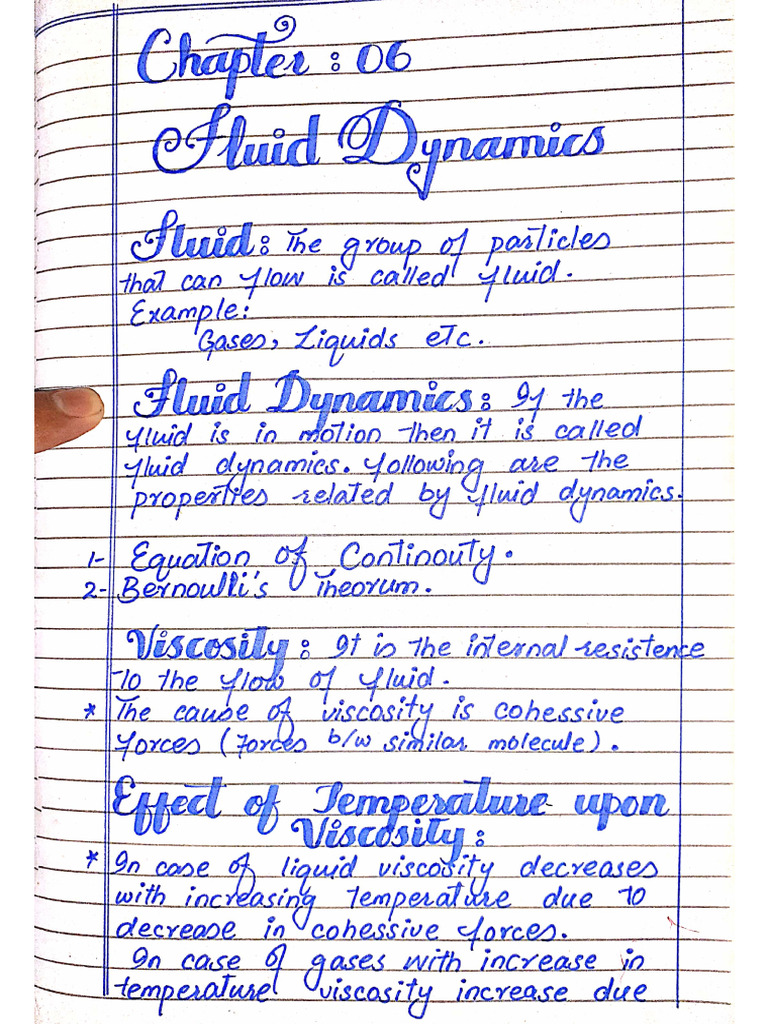 Chapter : 06
Fluid Dynamics
Fluid: The group of particles
that can flow is called fluid.
Example:
Gases, Liquids etc.
Fluid Dynamics: If the
fluid is in motion then it is called
fluid dynamics. following are the
properties related by fluid dynamics.
1- Equation of Continouty.
2- Bernoulli's Theorum.
Viscosity: It is the internal resistence
to the flow of fluid.
* The cause of viscosity is cohessive
forces (forces b/w similar molecule).
Effect of Temperature upon
Viscosity:
* In case of liquid viscosity decreases
with increasing temperature due to
decrease in cohessive forces.
In case of gases with increase in
temperature viscosity increase due